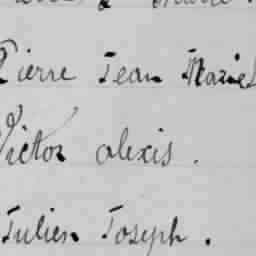 Pierre Jean Marie
Victor alexis.
Julien Joseph.